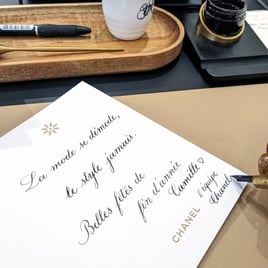 La mode se démode,
le style jamais.
Belles fêtes de
fin d'année
Camille ♡
l'équipe
Chanel
CHANEL
CHANEL